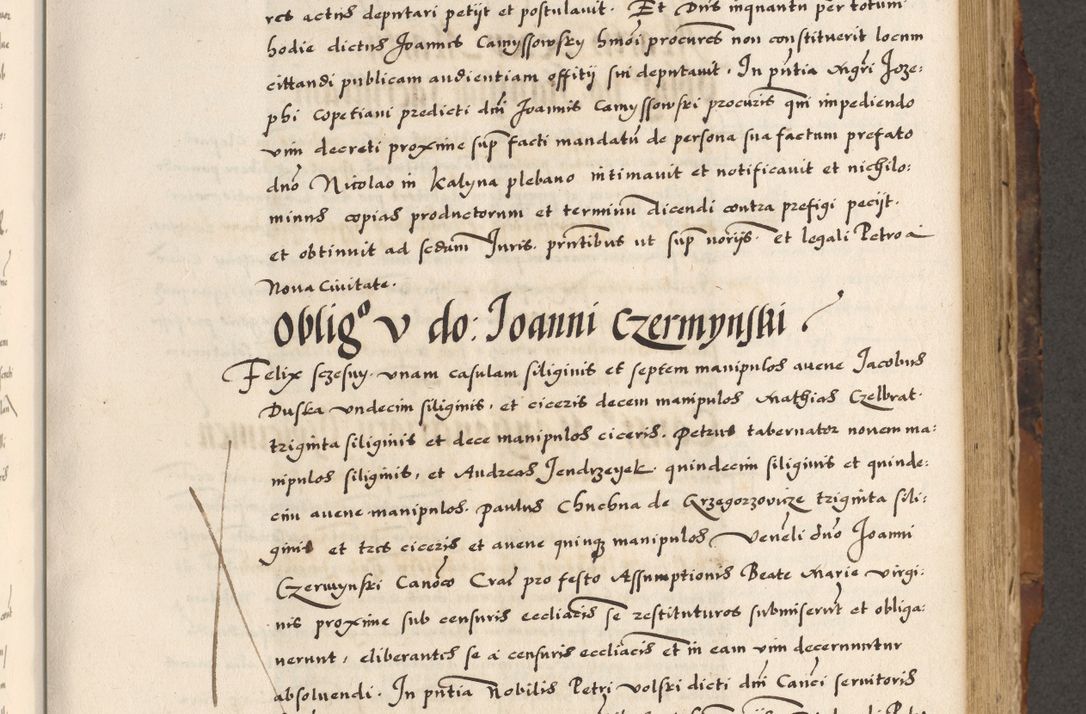 res actus deputari petijt et postulavit. Et Dns inquantu per totum
hodie dictus Joannes Camyssowsky hmoi procures non constituerit locum
cittandi publicam audientiam offitij sui deputauit. In pntia mgri Joze:
phi Copetiani predicti dni Joannis Camyssowski procuris qui impediendo
vim decreti proxime sup facti mandatu de persona sua factum prefato
dno Nicolao in Kalyna plebano intimauit et notificauit et nichilo:
minus copias productorum et terminu dicendi contra prefigi pecijt.
et obtinuit ad scdum Juris. pntibus ut sup norijs. et legali Petro a
Noua Ciuitate.
Oblig° v do: Joanni Czermynski
Felix sczesny. vnam casulam siliginis et septem manipulos auene Jacobus
Duska vndecim siliginis, et ciceris decem manipulos Mathias Czelbrat.
triginta siliginis et dece manipulos ciceris. Petrus tabernator nouem ma:
nipulos siliginis, et Andreas Jendrzeyek quindecim siliginis et quinde:
cim auene manipulos. Paulus Chuchna de Grzegorzouicze triginta sili:
ginis et tres ciceris et auene quinq manipulos Veneli dno Joanni
Czermynski Canoco Cra pro festo Assumptionis Beate Marie virgi:
nis proxime sub censuris eccliacis se restituturos submiserut et obliga:
uerunt, eliberantes se a censuris eccliacis et in eam vim decernuntur
absoluendi. In pntia Nobilis Petri volski dicti dni Canci seruitoris